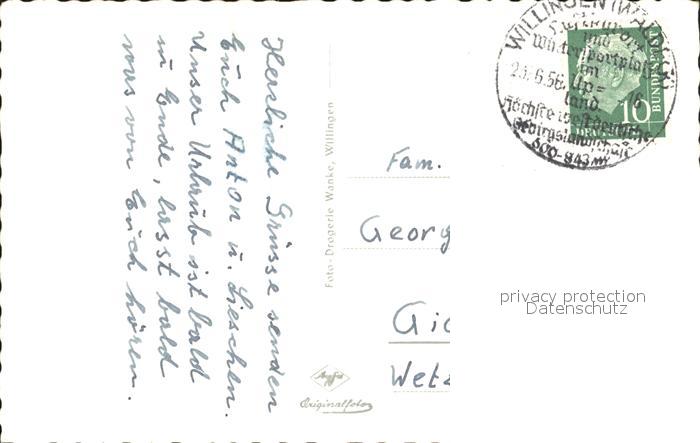 Herzliche Grüsse senden
Euch Anton u. Lieschen.
Unser Urlaub ist bald
zu Ende, lasst bald
was von Euch hören.
Foto-Drogerie Wanke, Willingen
Agfa
Originalfoto
WILLINGEN (WALDECK)
und
Wintersportplatz
im
Up=
land
Höchste westdeutsche
Gebirgslandschaft
500-843 m
23.6.56. 16
10
BUNDESPOST
Fam.
Georg
Gie
Wetz
privacy protection
Datenschutz